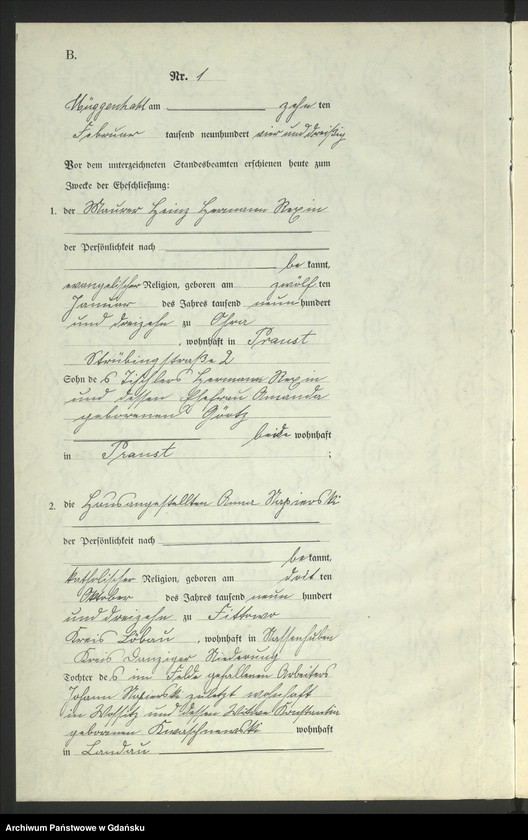 B.
Nr. 1
Müggenhahl am zehn ten
Februar tausend neunhundert vier und dreißig
Vor dem unterzeichneten Standesbeamten erschienen heute zum
Zwecke der Eheschließung:
1. der Maurer Heinz Hermann Rexin
der Persönlichkeit nach
be kannt,
evangelischer Religion, geboren am zwölf ten
Januar des Jahres tausend neun hundert
und dreizehn zu Ohra
, wohnhaft in Praust
Strübingstraße 2
Sohn des Tischlers Hermann Rexin
und dessen Ehefrau Amanda
geborenen Görtz
beide wohnhaft
in Praust ;
2. die Hausangestellten Anna Napierski
der Persönlichkeit nach
be kannt,
katholischer Religion, geboren am drit ten
Oktober des Jahres tausend neun hundert
und dreizehn zu Fittowo
Kreis Löbau , wohnhaft in Nassenhuben
Kreis Danziger Niederung
Tochter des im Felde gefallenen Arbeiters
Johann Napierski zuletzt wohnhaft
in Wossitz und dessen Witwe Konstantia
geborenen Kwaschnewski wohnhaft
in Landau
Archiwum Państwowe w Gdańsku